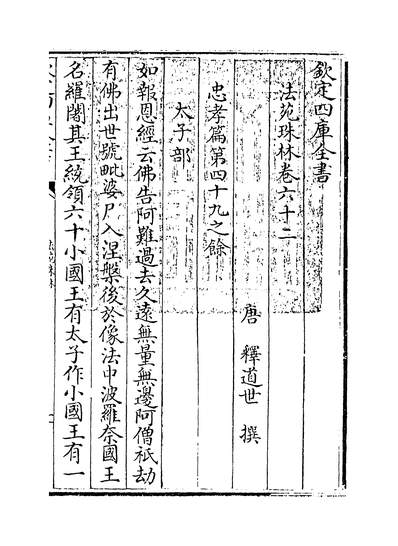 欽定四庫全書
法苑珠林卷六十二
唐 釋道世 撰
忠孝篇第四十九之餘
太子部
如報恩經云佛告阿難過去久遠無量無邊阿僧祇劫
有佛出世號毗婆尸入涅槃後於像法中波羅奈國王
名羅闍其王統領六十小國王有太子作小國王有一